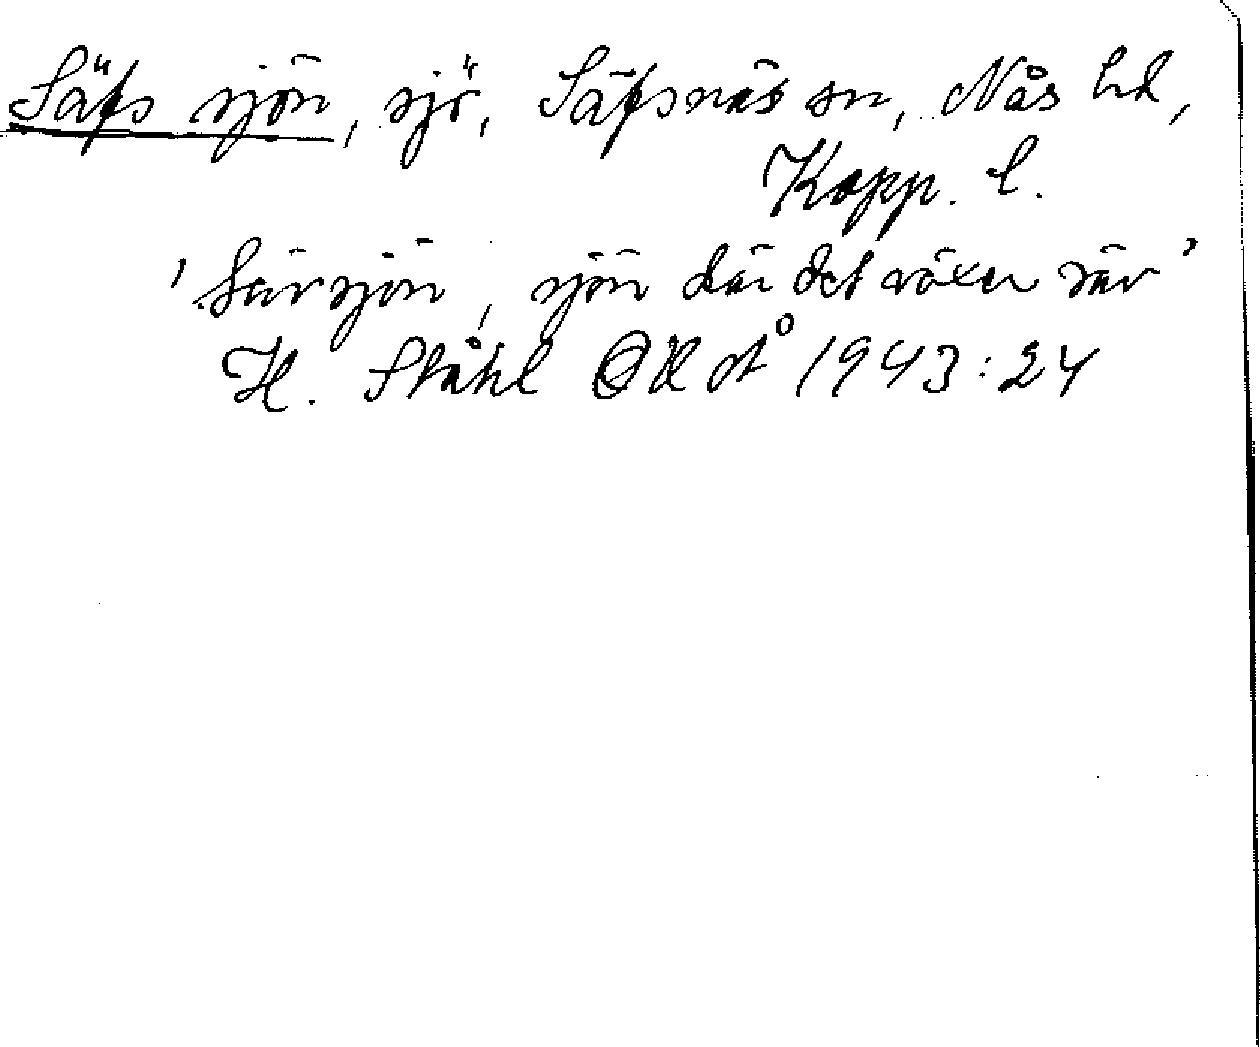 Säfs sjön, sjö, Säfsnäs sn, Nås hd,
Kopp. l.
'Sävsjön, sjön där det växer säv'
H. Ståhl OUÅ 1943:24